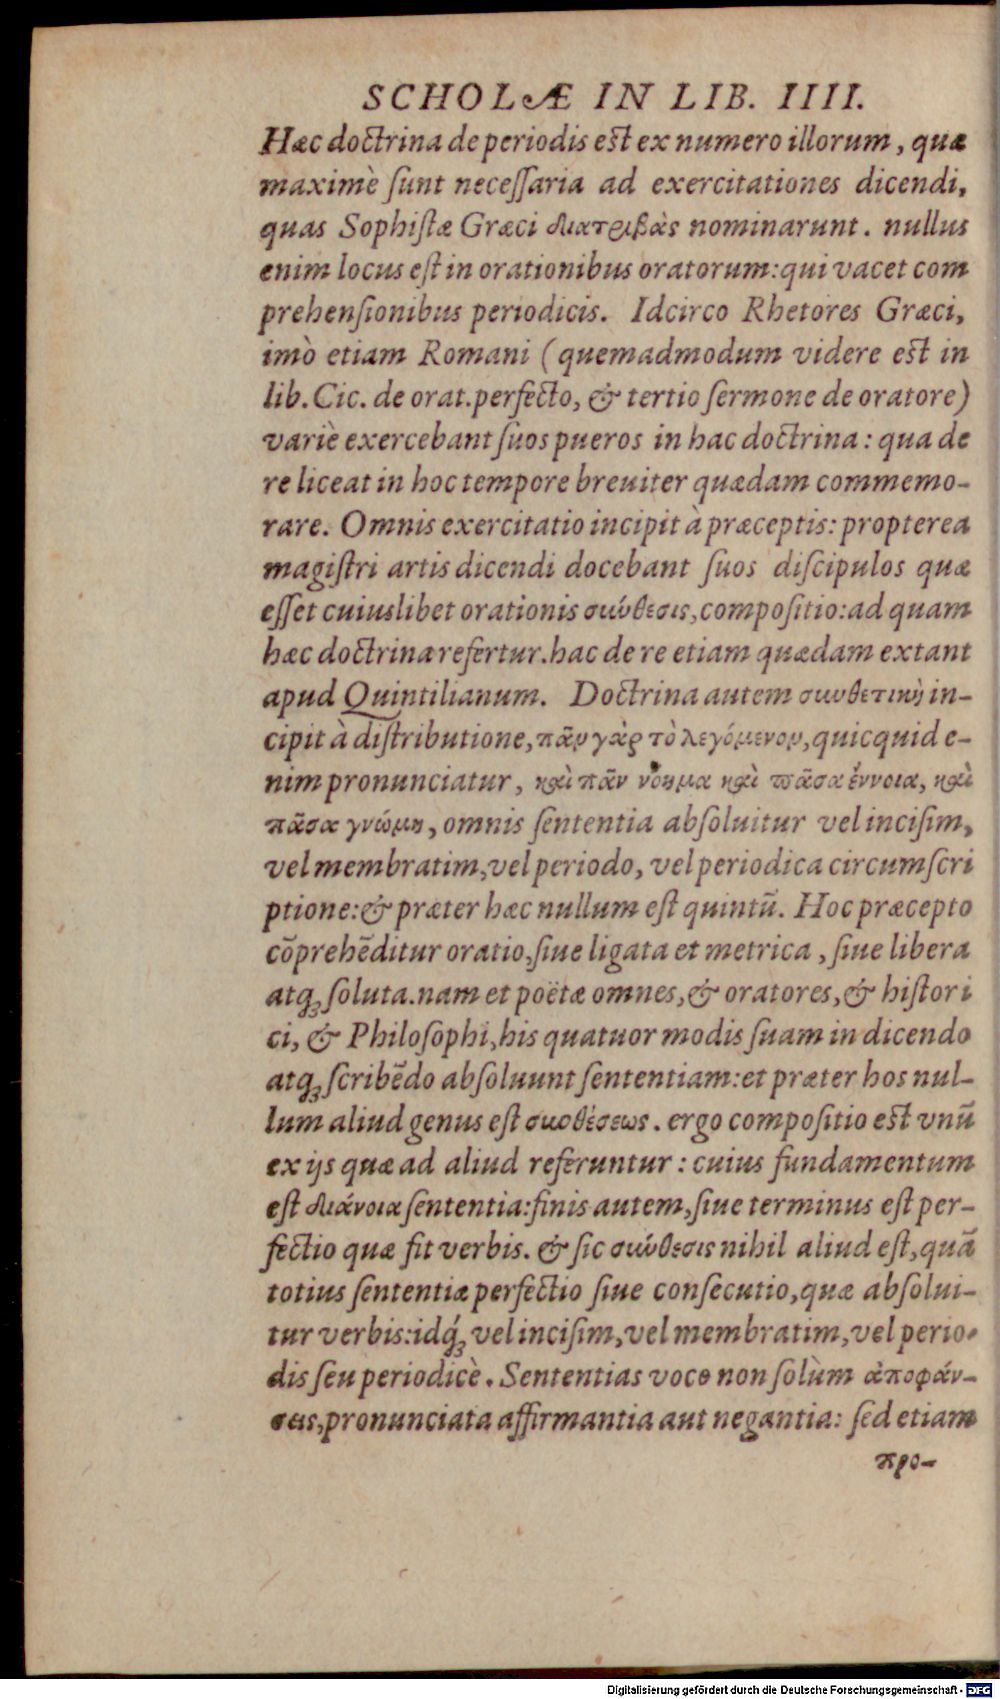 SCHOLÆ IN LIB. IIII.
Hæc doctrina de periodis est ex numero illorum, quæ
maximè ſunt neceſſaria ad exercitationes dicendi,
quas Sophiſtæ Græci διατριβὰς nominarunt. nullus
enim locus eſt in orationibus oratorum: qui vacet com
prehenſionibus periodicis. Idcirco Rhetores Græci,
imò etiam Romani (quemadmodum videre est in
lib. Cic. de orat. perfecto, & tertio ſermone de oratore)
variè exercebant ſuos pueros in hac doctrina: qua de
re liceat in hoc tempore breuiter quædam commemo-
rare. Omnis exercitatio incipit à præceptis: propterea
magiſtri artis dicendi docebant ſuos diſcipulos quæ
eſſet cuiuslibet orationis σύνθεσις, compoſitio: ad quam
hæc doctrina refertur. hac de re etiam quædam extant
apud Quintilianum. Doctrina autem συνθετικὴ in-
cipit à diſtributione, πᾶν γὰρ τὸ λεγόμενον, quicquid e-
nim pronunciatur, καὶ πᾶν νόημα καὶ πᾶσα ἔννοια, καὶ
πᾶσα γνώμη, omnis ſententia abſoluitur vel inciſim,
vel membratim, vel periodo, vel periodica circumſcri
ptione: & præter hæc nullum eſt quintū. Hoc præcepto
cōprehēditur oratio, ſiue ligata et metrica, ſiue libera
atq; ſoluta. nam et poëtæ omnes, & oratores, & hiſtori
ci, & Philoſophi, his quatuor modis ſuam in dicendo
atq; ſcribēdo abſoluunt ſententiam: et præter hos nul-
lum aliud genus eſt συνθέσεως. ergo compoſitio est vnū
ex ijs quæ ad aliud referuntur: cuius fundamentum
eſt διάνοια ſententia: finis autem, ſiue terminus eſt per-
fectio quæ fit verbis. & ſic σύνθεσις nihil aliud eſt, quā
totius ſententiæ perfectio ſiue conſecutio, quæ abſolui-
tur verbis: idq́; vel inciſim, vel membratim, vel perio-
dis ſeu periodicè. Sententias voco non ſolùm ἀποφάν-
σεις, pronunciata affirmantia aut negantia: ſed etiam
προ-
Digitalisierung gefördert durch die Deutsche Forschungsgemeinschaft - DFG